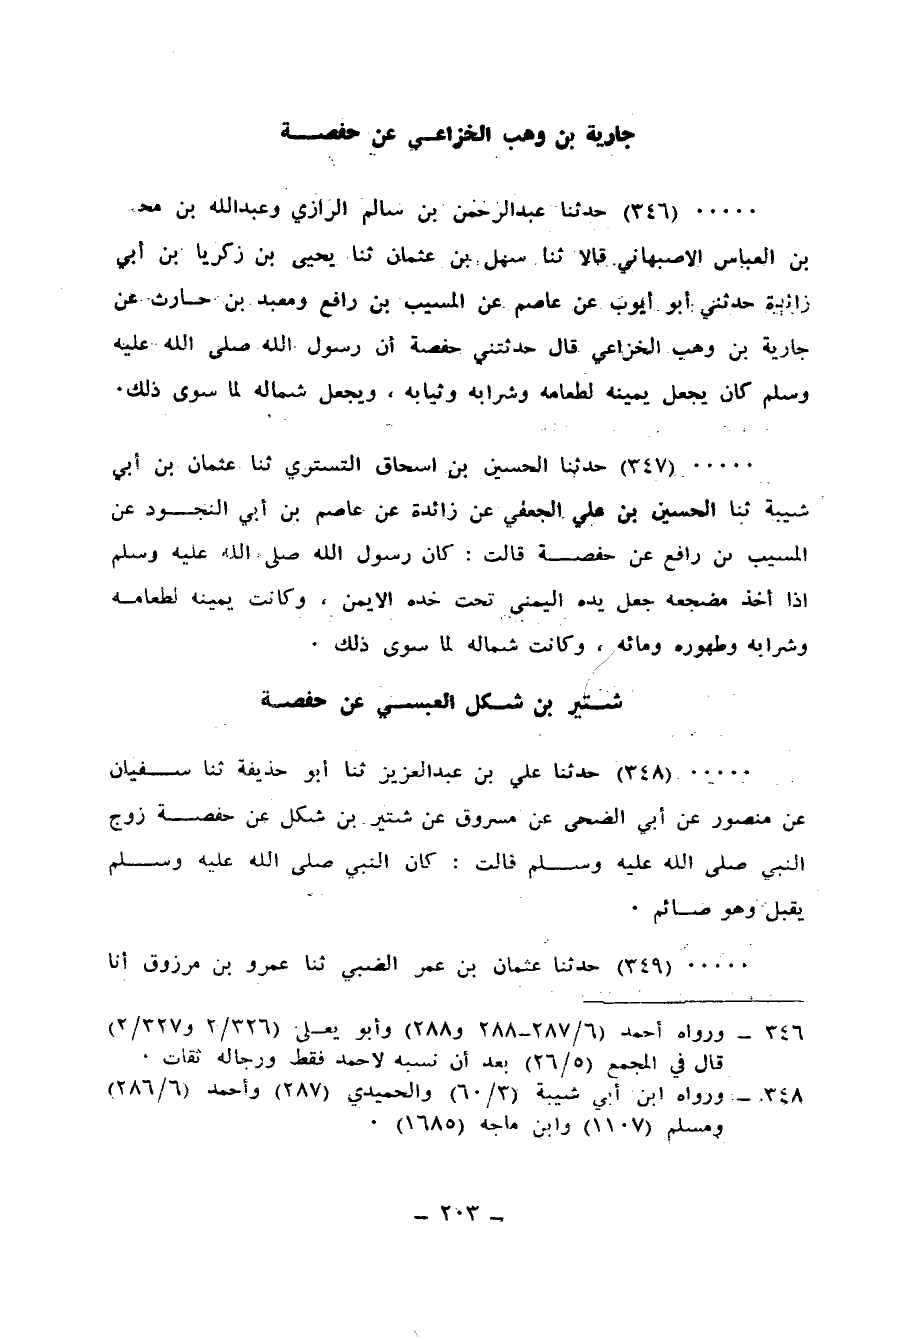 جارية بن وهب الخزاعي عن حفصة
..... (٣٤٦) حدثنا عبدالرحمن بن سالم الرازي وعبدالله بن
بن العباس الاصبهاني قالا ثنا سهل بن عثمان ثنا يحيى بن زكريا بن أبي
زائدة حدثني أبو أيوب عن عاصم عن المسيب بن رافع ومعبد بن حارث عن
جارية بن وهب الخزاعي قال حدثتني حفصة أن رسول الله صلى الله عليه
وسلم كان يجعل يمينه لطعامه وشرابه وثيابه ، ويجعل شماله لما سوى ذلك.
..... (٣٤٧) حدثنا الحسين بن اسحاق التستري ثنا عثمان بن أبي
شيبة ثنا الحسين بن علي الجعفي عن زائدة عن عاصم بن أبي النجود عن
المسيب بن رافع عن حفصة قالت : كان رسول الله صلى الله عليه وسلم
اذا أخذ مضجعه جعل يده اليمنى تحت خده الايمن ، وكانت يمينه لطعامه
وشرابه وطهوره ومائه ، وكانت شماله لما سوى ذلك .
شتير بن شكل العبسي عن حفصة
..... (٣٤٨) حدثنا علي بن عبدالعزيز ثنا أبو حذيفة ثنا سفيان
عن منصور عن أبي الضحى عن مسروق عن شتير بن شكل عن حفصة زوج
النبي صلى الله عليه وسلم قالت : كان النبي صلى الله عليه وسلم
يقبل وهو صائم .
..... (٣٤٩) حدثنا عثمان بن عمر الضبي ثنا عمرو بن مرزوق أنا
٣٤٦ - ورواه أحمد (٢٨٧/٦-٢٨٨ و٢٨٨) وأبو يعلى (٢/٣٢٦ و٢/٣٢٧)
قال في المجمع (٢٦/٥) بعد أن نسبه لاحمد فقط ورجاله ثقات .
٣٤٨ - ورواه ابن أبي شيبة (٦٠/٣) والحميدي (٢٨٧) وأحمد (٢٨٦/٦)
ومسلم (١١٠٧) وابن ماجه (١٦٨٥) .
- ٢٠٣ -